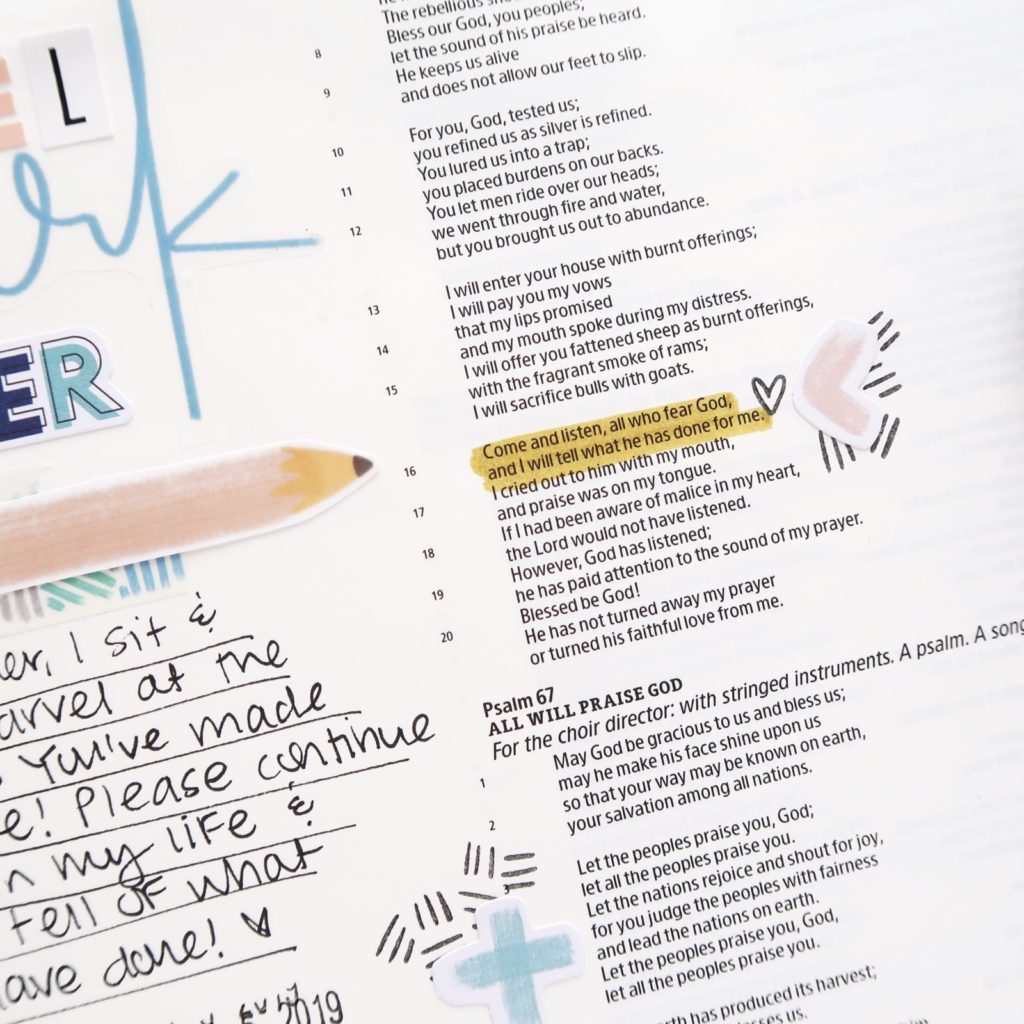 The rebellious
Bless our God, you peoples;
8 let the sound of his praise be heard.
He keeps us alive
9 and does not allow our feet to slip.
For you, God, tested us;
10 you refined us as silver is refined.
You lured us into a trap;
11 you placed burdens on our backs.
You let men ride over our heads;
12 we went through fire and water,
but you brought us out to abundance.
I will enter your house with burnt offerings;
13 I will pay you my vows
that my lips promised
14 and my mouth spoke during my distress.
I will offer you fattened sheep as burnt offerings,
15 with the fragrant smoke of rams;
I will sacrifice bulls with goats.
Come and listen, all who fear God,
16 and I will tell what he has done for me.
I cried out to him with my mouth,
17 and praise was on my tongue.
If I had been aware of malice in my heart,
18 the Lord would not have listened.
However, God has listened;
19 he has paid attention to the sound of my prayer.
Blessed be God!
20 He has not turned away my prayer
or turned his faithful love from me.
Psalm 67
ALL WILL PRAISE GOD
For the choir director: with stringed instruments. A psalm. A song
May God be gracious to us and bless us;
1 may he make his face shine upon us
so that your way may be known on earth,
2 your salvation among all nations.
Let the peoples praise you, God;
let all the peoples praise you.
Let the nations rejoice and shout for joy,
for you judge the peoples with fairness
and lead the nations on earth.
Let the peoples praise you, God,
let all the peoples praise you.
has produced its harvest;
us.
L
ER
I sit &
at the
You've made
! Please continue
my life &
tell of what
done!
2019